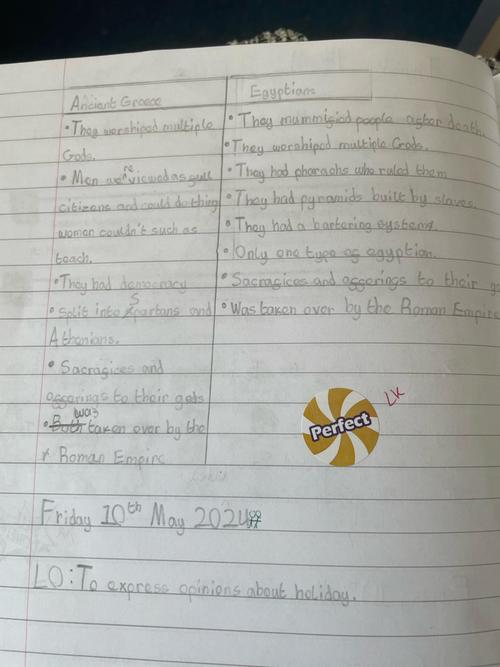 Ancient Greece
• They worshiped multiple
Gods.
• Men were viewed as full
citizens and could do thing
women couldn't such as
teach.
• They had democracy
• split into Spartans and
Athenians.
• Sacrafices and
offerings to their gods
• was taken over by the
Roman Empire
Egyptians
• They mummified people after death.
• They worshiped multiple Gods.
• They had pharaohs who ruled them
• They had pyramids built by slaves.
• They had a bartering system.
• Only one type of egyption.
• Sacrafices and offerings to their go
• Was taken over by the Roman Empire
Perfect
LK
Friday 10th May 2024
LO: To express opinions about holiday.